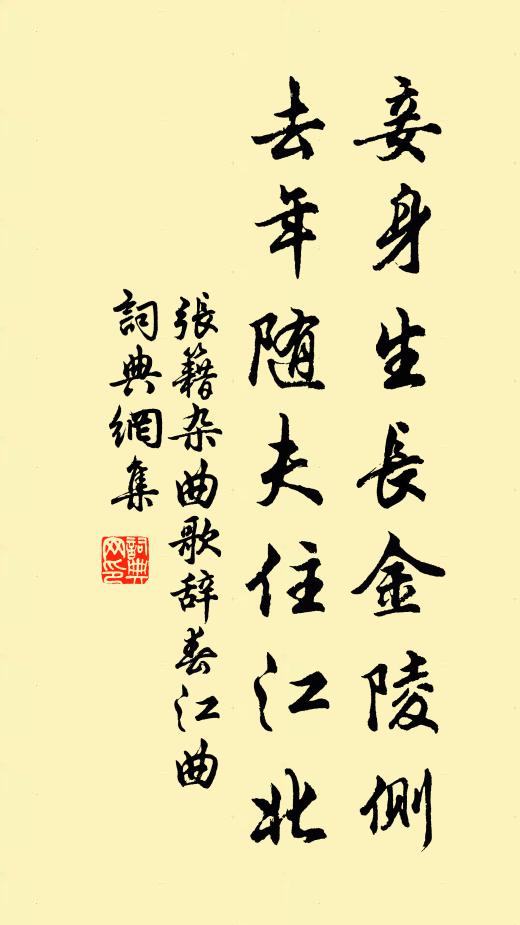 妾身生長金陵側
去年随夫住江北
張籍杂曲歌辞春江曲
詞典網集
詞典網印